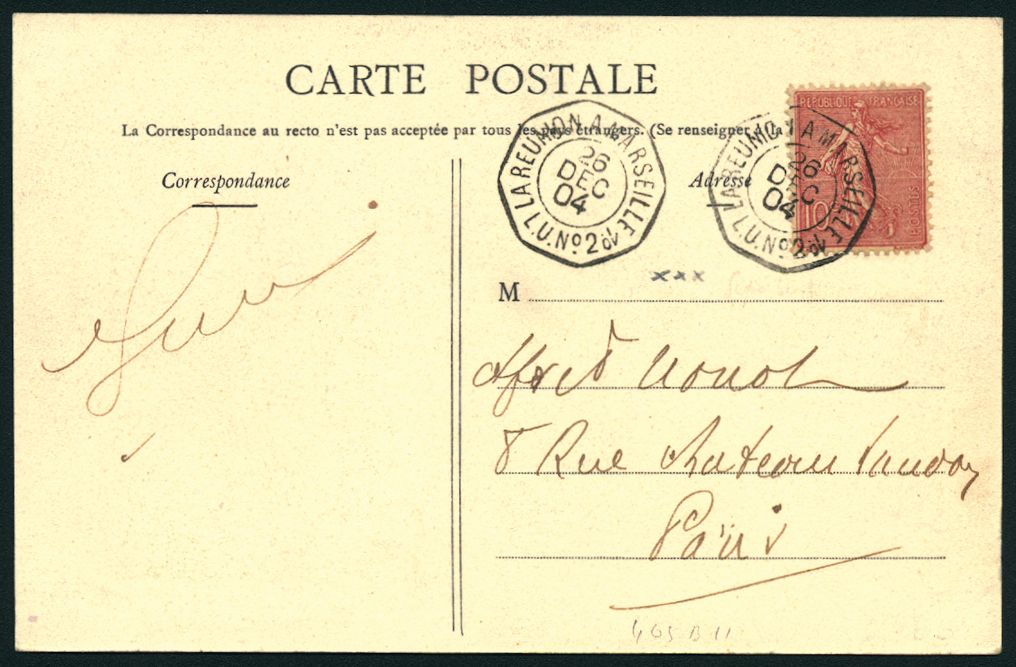 CARTE POSTALE
La Correspondance au recto n'est pas acceptée par tous les pays étrangers. (Se renseigner à la
Correspondance
Adresse
REPUBLIQUE FRANÇAISE
10
POSTES
LA REUNION A MARSEILLE
26
DEC
04
L.U. Nº 2
LA REUNION A MARSEILLE
26
DEC
04
L.U. Nº 2
xxx
M
Alfred
8 Rue Chateau Landon
Paris
465 B 11